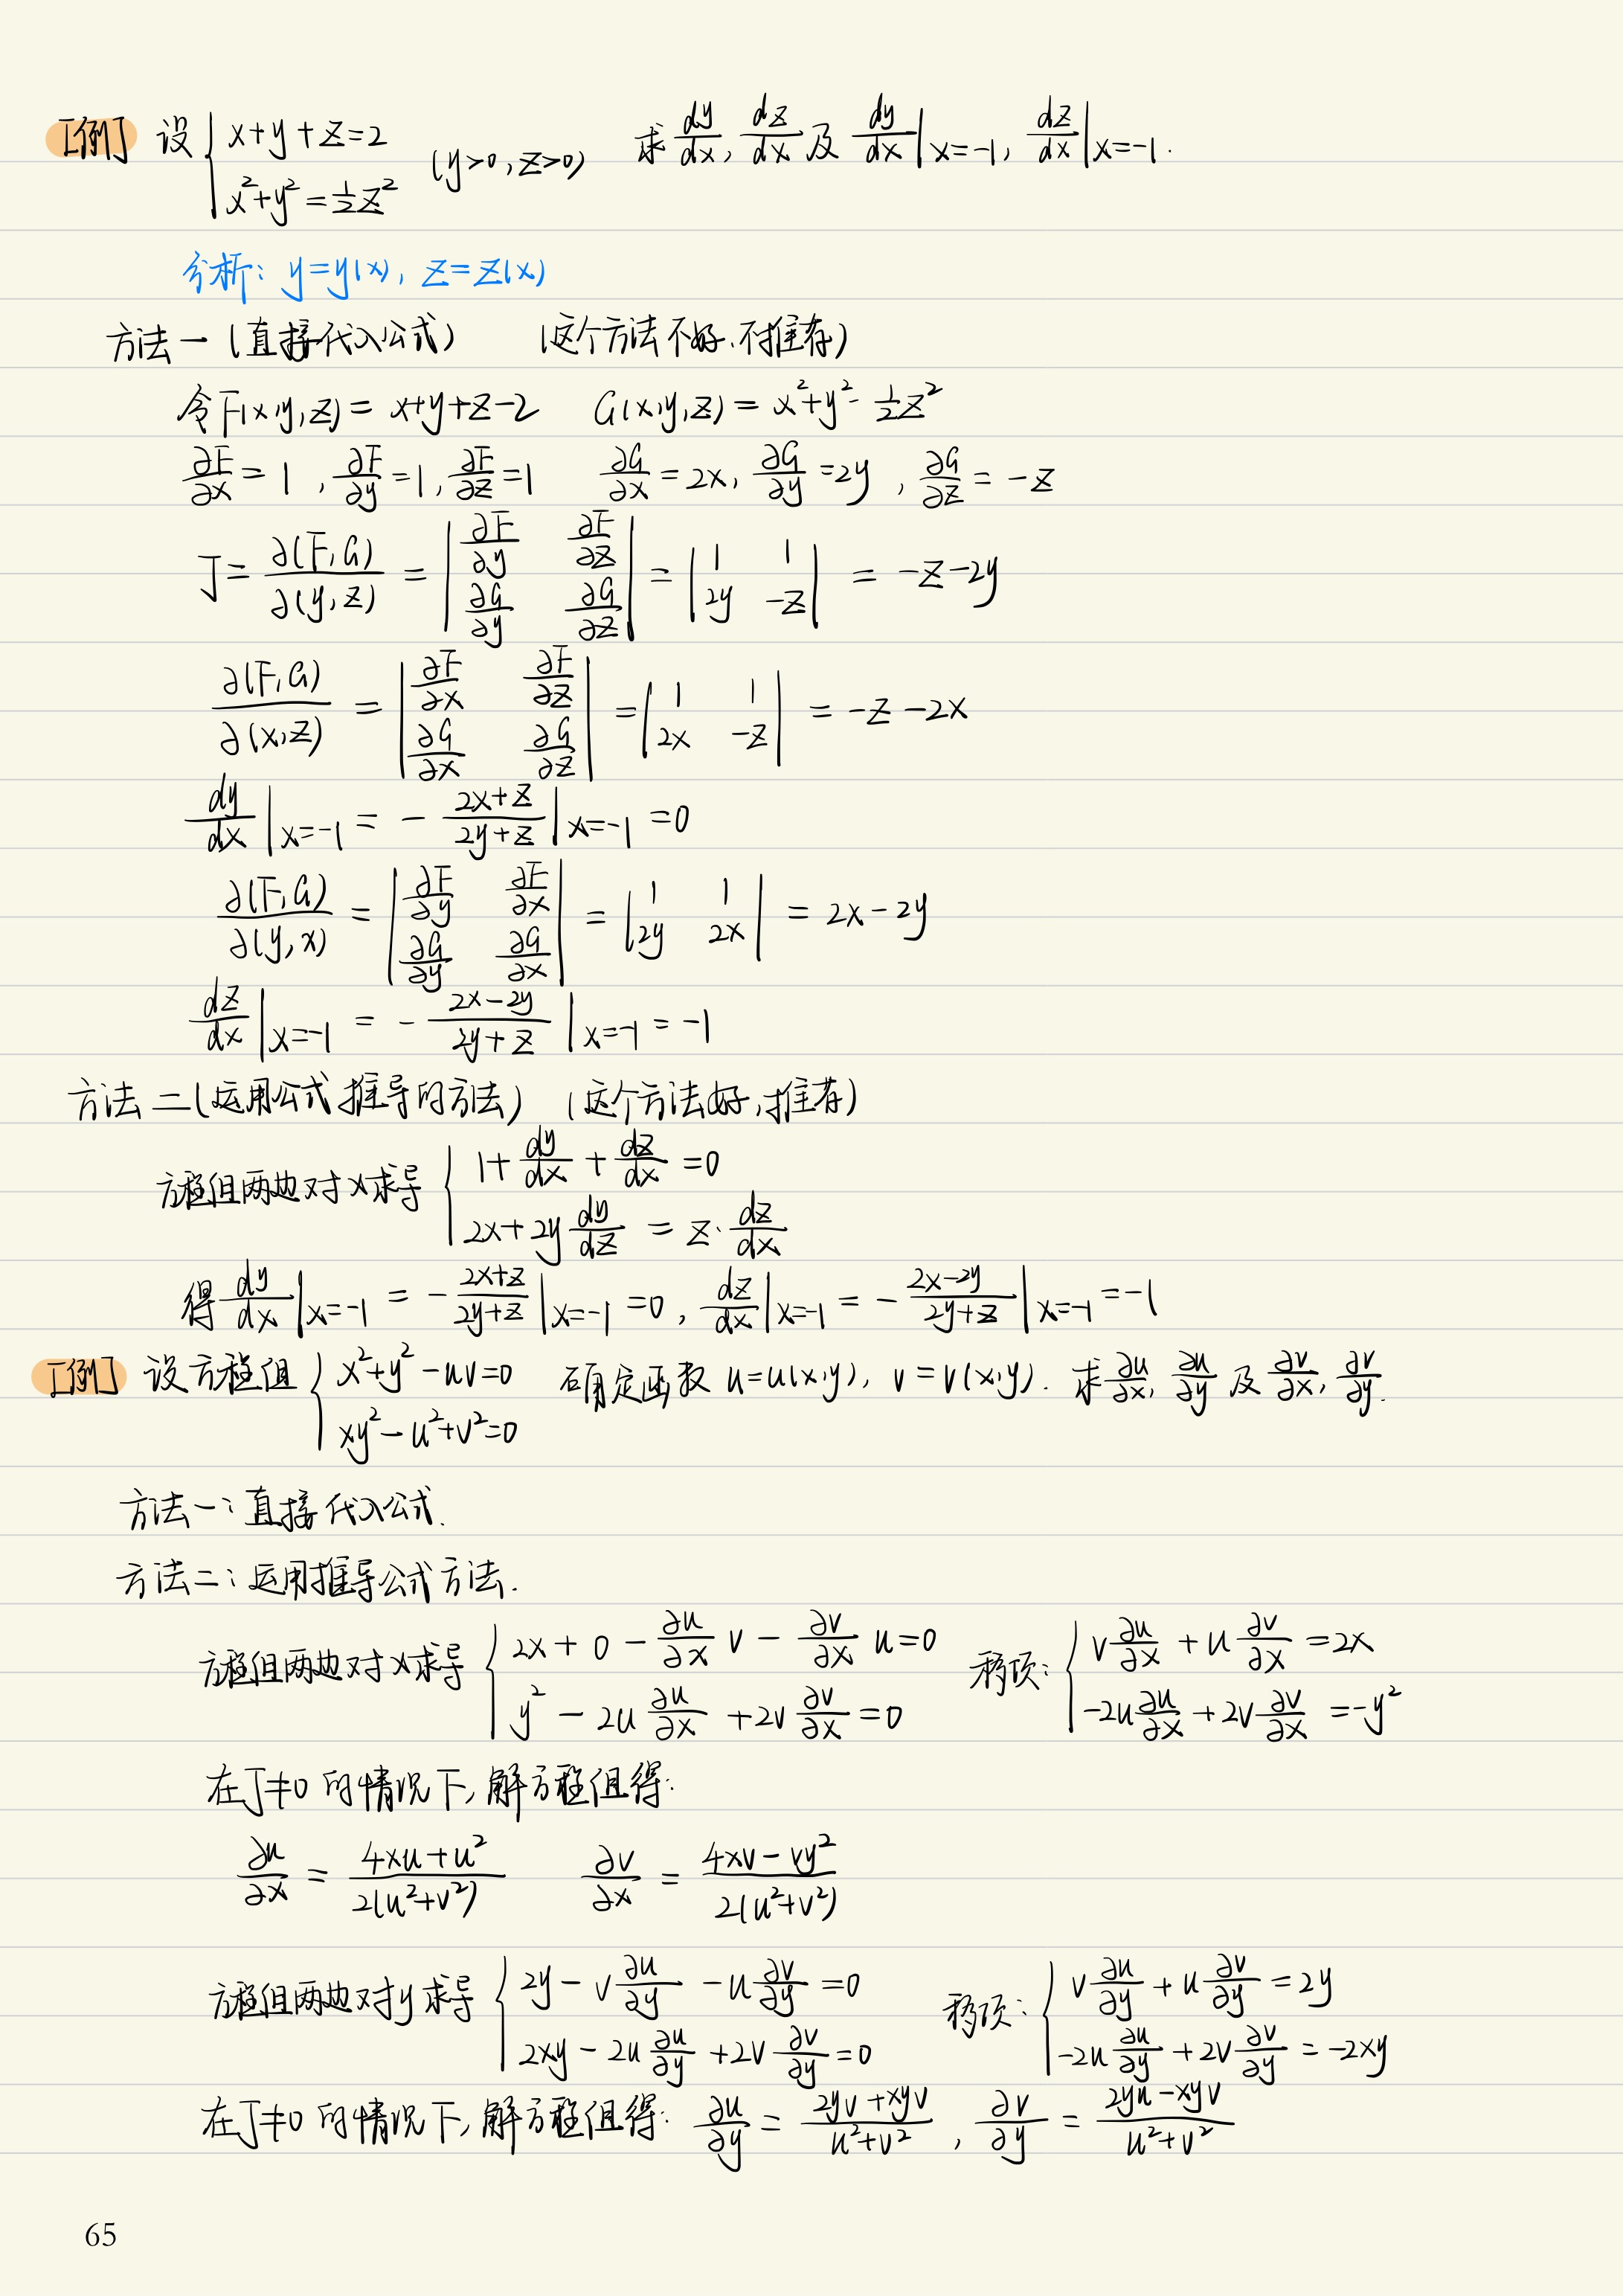 [例] 设 { x+y+z=2 ; x²+y²=½z² (y>0, z>0) 求 dy/dx, dz/dx 及 dy/dx|x=-1, dz/dx|x=-1.
分析: y=y(x), z=z(x)
方法一 (直接代入公式) (这个方法不好、不推荐)
令F(x,y,z)= x+y+z-2 G(x,y,z)= x²+y²-½z²
∂F/∂x = 1, ∂F/∂y = 1, ∂F/∂z = 1 ∂G/∂x = 2x, ∂G/∂y = 2y, ∂G/∂z = -z
J = ∂(F,G)/∂(y,z) = |∂F/∂y ∂F/∂z ; ∂G/∂y ∂G/∂z| = |1 1 ; 2y -z| = -z-2y
∂(F,G)/∂(x,z) = |∂F/∂x ∂F/∂z ; ∂G/∂x ∂G/∂z| = |1 1 ; 2x -z| = -z-2x
dy/dx|x=-1 = - (2x+z)/(2y+z)|x=-1 = 0
∂(F,G)/∂(y,x) = |∂F/∂y ∂F/∂x ; ∂G/∂y ∂G/∂x| = |1 1 ; 2y 2x| = 2x-2y
dz/dx|x=-1 = - (2x-2y)/(2y+z)|x=-1 = -1
方法二(运用公式推导的方法) (这个方法好,推荐)
方程组两边对x求导 { 1+dy/dx+dz/dx=0 ; 2x+2y dy/dz = z·dz/dx
得 dy/dx|x=-1 = -(2x+z)/(2y+z)|x=-1 = 0, dz/dx|x=-1 = -(2x-2y)/(2y+z)|x=-1 = -1
[例] 设方程组 { x²+y²-uv=0 ; xy²-u²+v²=0 确定函数 u=u(x,y), v=v(x,y). 求 ∂u/∂x, ∂u/∂y 及 ∂v/∂x, ∂v/∂y.
方法一: 直接代入公式.
方法二: 运用推导公式方法.
方程组两边对x求导 { 2x+0-∂u/∂x v-∂v/∂x u=0 ; y²-2u ∂u/∂x+2v ∂v/∂x=0 移项: { v ∂u/∂x+u ∂v/∂x=2x ; -2u ∂u/∂x+2v ∂v/∂x=-y²
在J≠0的情况下,解方程组得:
∂u/∂x = (4xu+u²)/(2(u²+v²)) ∂v/∂x = (4xv-vy²)/(2(u²+v²))
方程组两边对y求导 { 2y-v ∂u/∂y-u ∂v/∂y=0 ; 2xy-2u ∂u/∂y+2v ∂v/∂y=0 移项: { v ∂u/∂y+u ∂v/∂y=2y ; -2u ∂u/∂y+2v ∂v/∂y=-2xy
在J≠0的情况下,解方程组得: ∂u/∂y = (2yv+xyv)/(u²+v²), ∂v/∂y = (2yu-xyv)/(u²+v²)
65